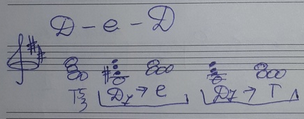 D - e - D
T 5/3 D7 → e D7 → T